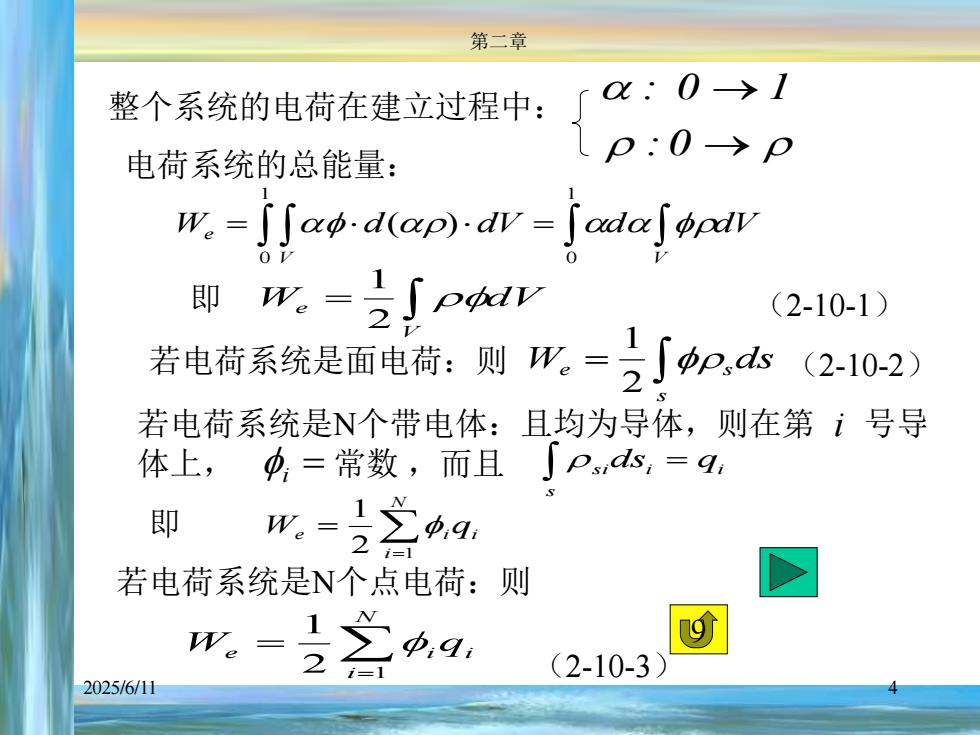 第二章
整个系统的电荷在建立过程中： { α : 0 → 1
ρ : 0 → ρ
电荷系统的总能量：
W_e = ∫_0^1 ∫_V αφ · d(αρ) · dV = ∫_0^1 αdα ∫_V φρdV
即 W_e = 1/2 ∫_V ρφdV （2-10-1）
若电荷系统是面电荷：则 W_e = 1/2 ∫_s φρ_s ds （2-10-2）
若电荷系统是N个带电体：且均为导体，则在第 i 号导
体上， φ_i = 常数 ，而且 ∫_s ρ_si ds_i = q_i
即 W_e = 1/2 ∑_{i=1}^N φ_i q_i
若电荷系统是N个点电荷：则
W_e = 1/2 ∑_{i=1}^N φ_i q_i （2-10-3）
9
2025/6/11
4